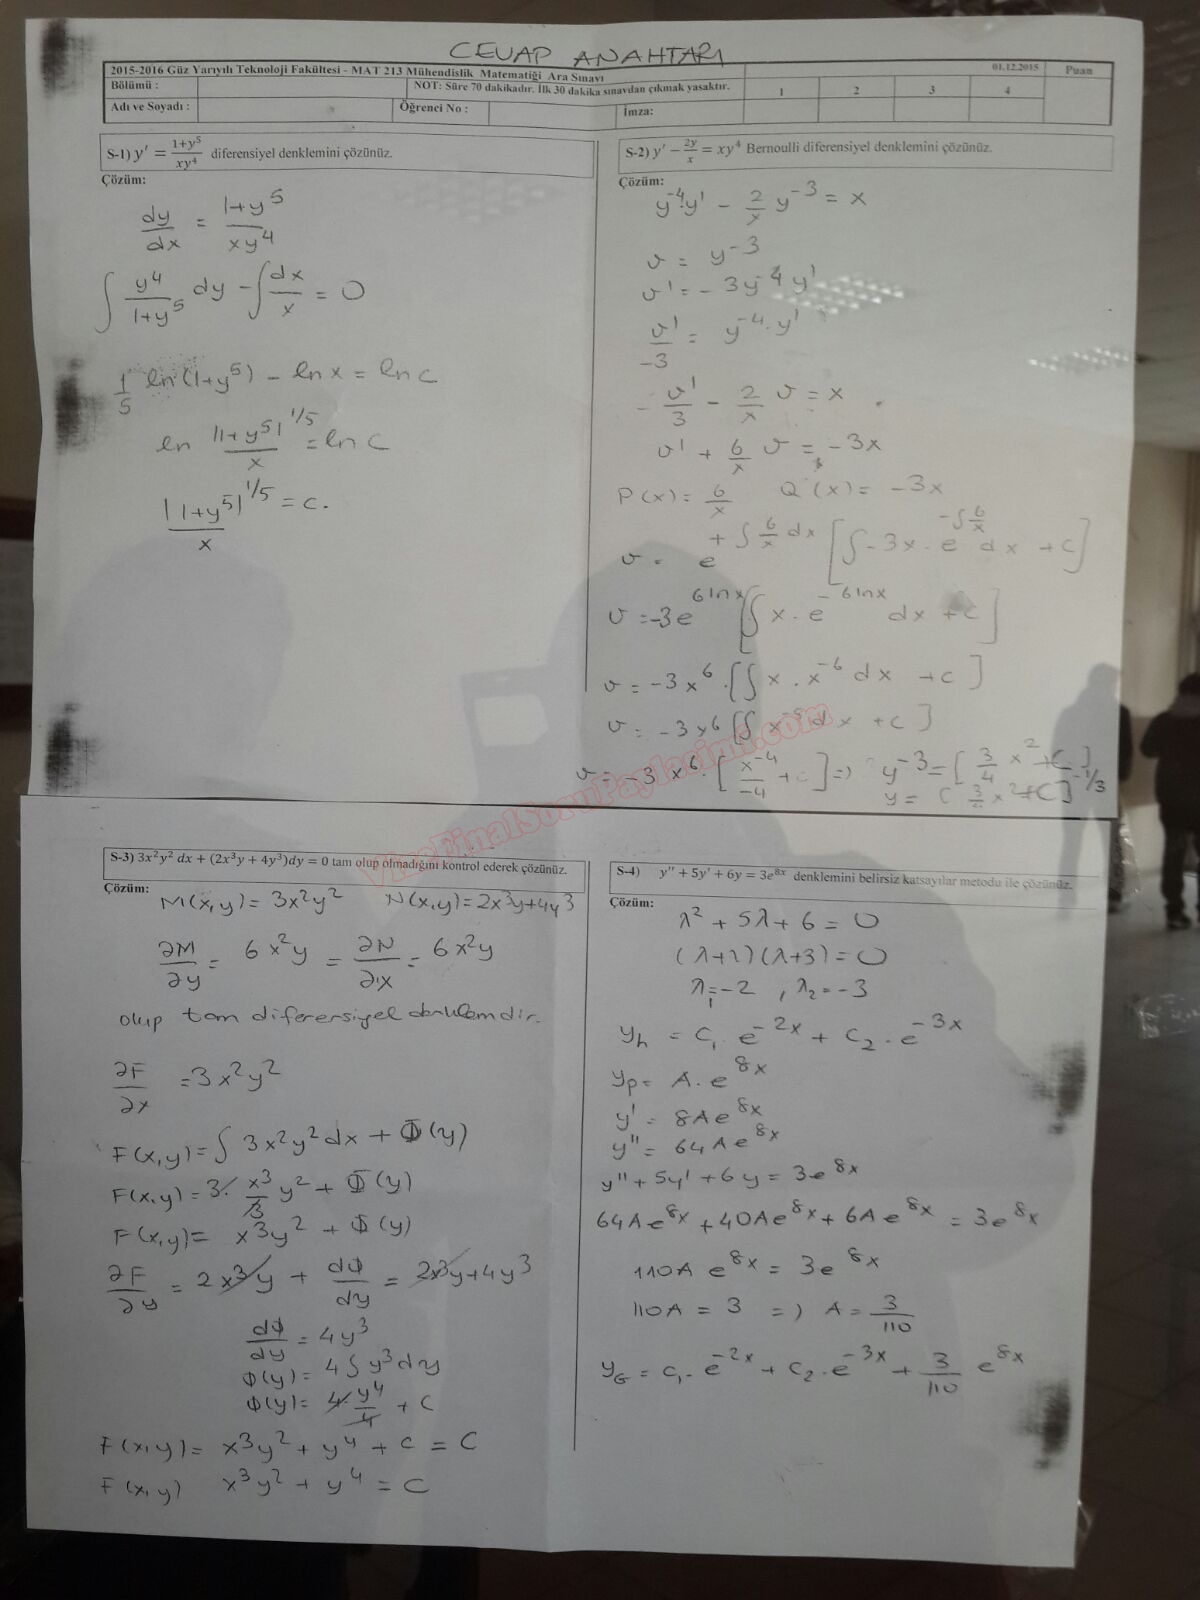 CEVAP ANAHTARI
2015-2016 Güz Yarıyılı Teknoloji Fakültesi - MAT 213 Mühendislik Matematiği Ara Sınavı 01.12.2015 Puan
Bölümü : NOT: Süre 70 dakikadır. İlk 30 dakika sınavdan çıkmak yasaktır. 1 2 3 4
Adı ve Soyadı : Öğrenci No : İmza:
S-1) y' = (1+y^5)/(xy^4) diferensiyel denklemini çözünüz.
Çözüm:
dy/dx = (1+y^5)/(xy^4)
∫ y^4/(1+y^5) dy - ∫ dx/x = 0
1/5 ln(1+y^5) - ln x = ln c
ln |1+y^5|^1/5 / x = ln c
|1+y^5|^1/5 / x = c.
S-2) y' - 2y/x = xy^4 Bernoulli diferensiyel denklemini çözünüz.
Çözüm:
y^-4.y' - 2/x y^-3 = x
v = y^-3
v' = -3y^-4 y'
v'/-3 = y^-4.y'
-v'/3 - 2/x v = x
v' + 6/x v = -3x
P(x) = 6/x Q(x) = -3x
v = e^+∫6/x dx [∫-3x.e^-∫6/x dx + c]
v = -3e^6lnx [∫x.e^-6lnx dx + c]
v = -3x^6.[∫x.x^-6 dx + c]
v = -3x^6[∫x^-5 dx + c]
v = -3x^6.[x^-4/-4 + c] => y^-3 = [3/4 x^2 + C]
y = [3/4 x^2 + C]^-1/3
ViseFinalSoruPaylasimi.com
S-3) 3x^2y^2 dx + (2x^3y + 4y^3)dy = 0 tam olup olmadığını kontrol ederek çözünüz.
Çözüm:
M(x,y) = 3x^2y^2 N(x,y) = 2x^3y+4y^3
∂M/∂y = 6x^2y = ∂N/∂x = 6x^2y
olup tam diferensiyel denklemdir.
∂F/∂x = 3x^2y^2
F(x,y) = ∫3x^2y^2dx + Φ(y)
F(x,y) = 3.x^3/3 y^2 + Φ(y)
F(x,y) = x^3y^2 + Φ(y)
∂F/∂y = 2x^3y + dΦ/dy = 2x^3y+4y^3
dΦ/dy = 4y^3
Φ(y) = 4∫y^3dy
Φ(y) = 4.y^4/4 + c
F(x,y) = x^3y^2 + y^4 + c = C
F(x,y) x^3y^2 + y^4 = C
S-4) y'' + 5y' + 6y = 3e^8x denklemini belirsiz katsayılar metodu ile çözünüz.
Çözüm:
λ^2 + 5λ + 6 = 0
(λ+2)(λ+3) = 0
λ1 = -2 , λ2 = -3
yh = c1.e^-2x + c2.e^-3x
yp = A.e^8x
y' = 8Ae^8x
y'' = 64Ae^8x
y''+5y'+6y = 3e^8x
64Ae^8x + 40Ae^8x + 6Ae^8x = 3e^8x
110A e^8x = 3e^8x
110A = 3 => A = 3/110
yG = c1.e^-2x + c2.e^-3x + 3/110 e^8x